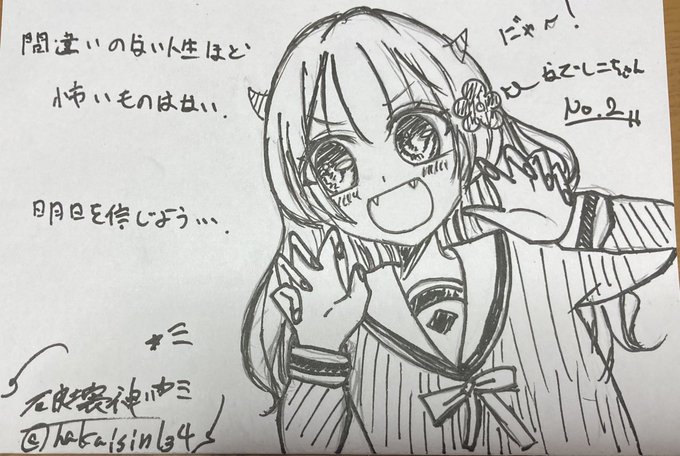 間違いのない人生ほど
怖いものはない.
明日を信じよう...
にゃ〜!
なでしこちゃん
No.2
破壊神
@hakaisin134